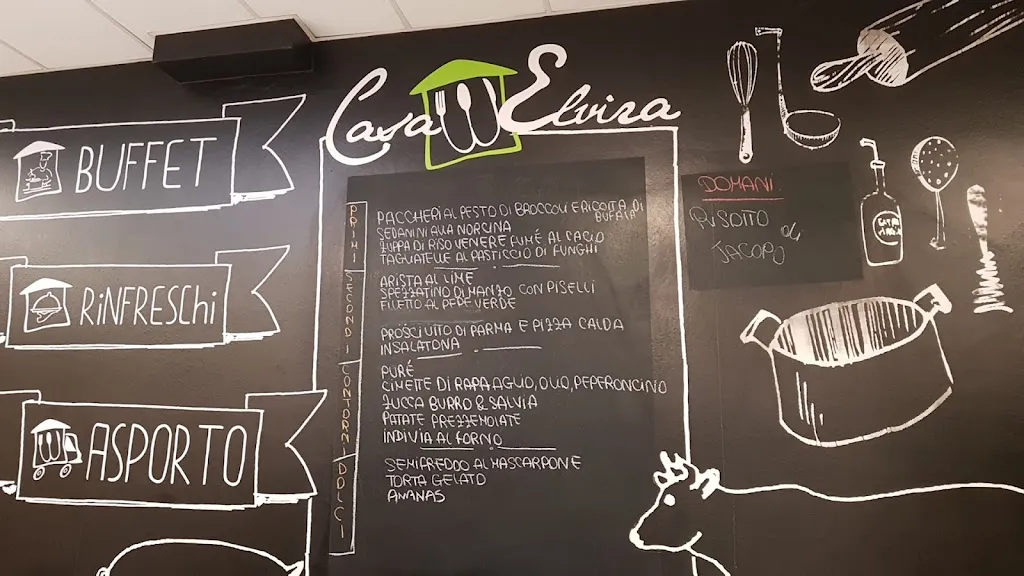 Casa Elvira
BUFFET
RiNFRESChi
ASPORTO
PRIMI
PACCHERI AL PESTO DI BROCCOLI E RICOTTA DI
BUFALA
SEDANINI ALLA NORCINA
ZUPPA DI RISO VENERE FUMÉ AL CACIO
TAGLIATELLE AL PASTICCIO DI FUNGHI
SECONDI
ARISTA AL LIME
SPEZZATINO DI MANZO CON PISELLI
FILETTO AL PEPE VERDE
PROSCIUTTO DI PARMA E PIZZA CALDA
INSALATONA
CONTORNI
PURÉ
CIMETE DI RAPA, AGLIO, OLIO, PEPERONCINO
ZUCCA BURRO & SALVIA
PATATE PREZZEMOLATE
INDIVIA AL FORNO
DOLCI
SEMIFREDDO AL MASCARPONE
TORTA GELATO
ANANAS
DOMANI
RISOTTO
di
JACOPO